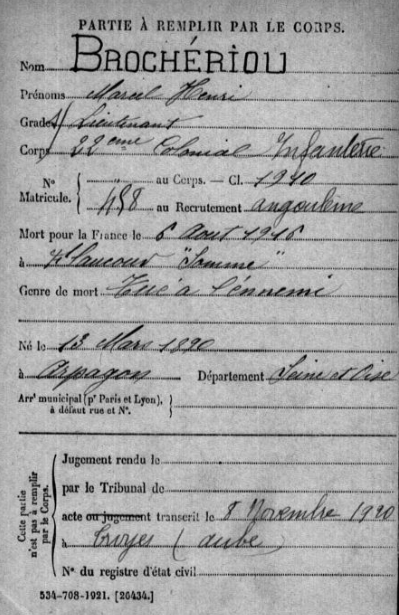 PARTIE À REMPLIR PAR LE CORPS.
Nom BROCHÉRIOU
Prénoms Marcel Henri
Grade Lieutenant
Corps 22ème Colonial Infanterie
N° Matricule. { " au Corps. — Cl. 1910
458 au Recrutement angoulème
Mort pour la France le 6 Aout 1916
à "Somme"
Genre de mort Tué à l'énnemi
Né le 13 Mars 1890
à Arpagon Département Seine et Oise
Arrt municipal (pr Paris et Lyon), à défaut rue et N°.
Cette partie n'est pas à remplir par le Corps.
Jugement rendu le
par le Tribunal de
acte ou jugement transcrit le 8 Novembre 1920
à Troyes (aube)
N° du registre d'état civil
534-708-1921. [26434.]